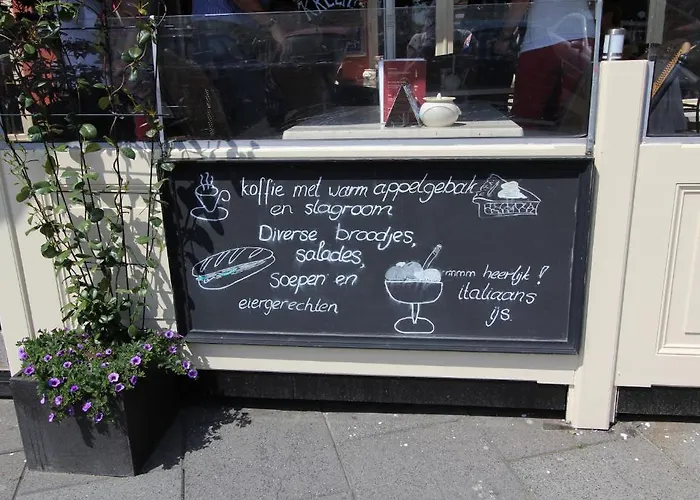 koffie met warm appelgebak
en slagroom
Diverse broodjes,
salades,
soepen en
eiergerechten
mmm heerlijk!
italiaans
ijs.